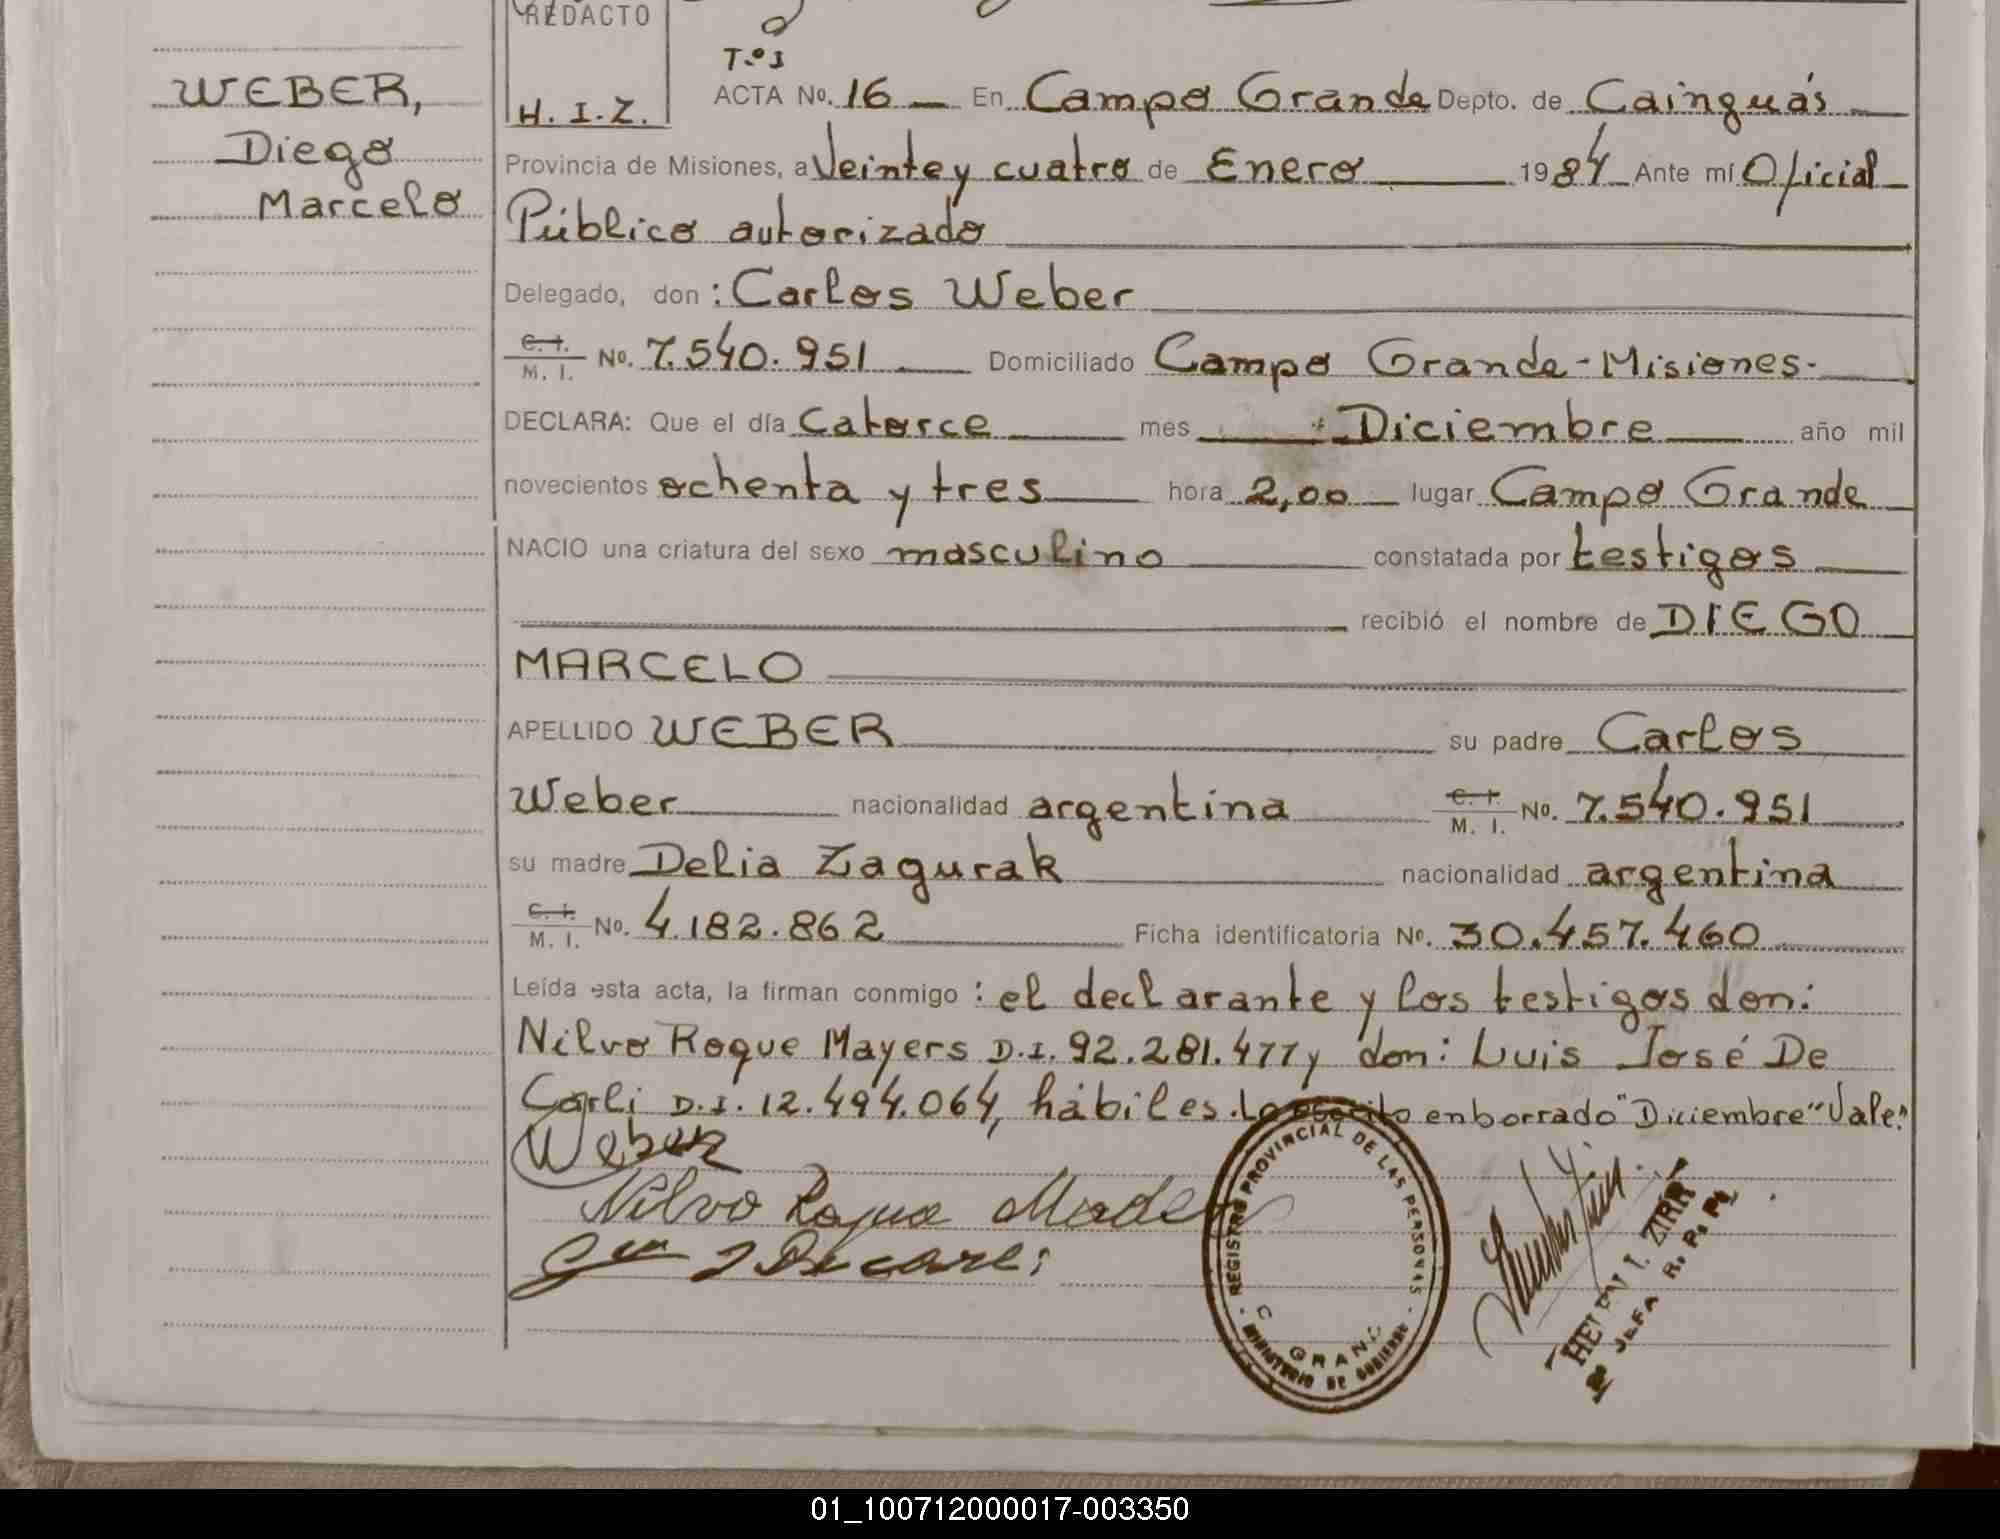 REDACTO
H. I. Z.
WEBER,
Diego
Marcelo
T.º 1
ACTA No. 16 — En Campo Grande Depto. de Cainguás
Provincia de Misiones, a Veinte y cuatro de Enero 1984 Ante mí Oficial
Público autorizado
Delegado, don : Carlos Weber
C. I. / M. I. No. 7.540.951 Domiciliado Campo Grande - Misiones.
DECLARA: Que el día Catorce mes Diciembre año mil
novecientos ochenta y tres hora 2,00 lugar Campo Grande
NACIO una criatura del sexo masculino constatada por testigos
recibió el nombre de DIEGO
MARCELO
APELLIDO WEBER su padre Carlos
Weber nacionalidad argentina C. I. / M. I. No. 7.540.951
su madre Delia Zagurak nacionalidad argentina
C. I. / M. I. No. 4.182.862 Ficha identificatoria No. 30.457.460
Leída esta acta, la firman conmigo : el declarante y los testigos don:
Nilvo Roque Mayers D.I. 92.281.477 y don: Luis José De
Carli D.I. 12.494.064, hábiles. Lo escrito enborrado "Diciembre" Vale."
Weber
Nilvo Roque
REGISTRO PROVINCIAL DE LAS PERSONAS
C GRAND
MINISTERIO DE GOBIERNO
JEFA R. P. P.
01_100712000017-003350